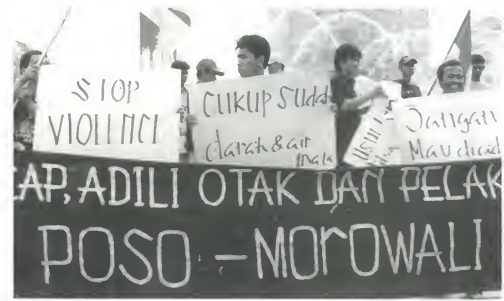 STOP
VIOLINCI
CUKUP SUDAH
darah & air
mata
Jangan
Mau di
AP, ADILI OTAK DAN PELAK
POSO - MOROWALI